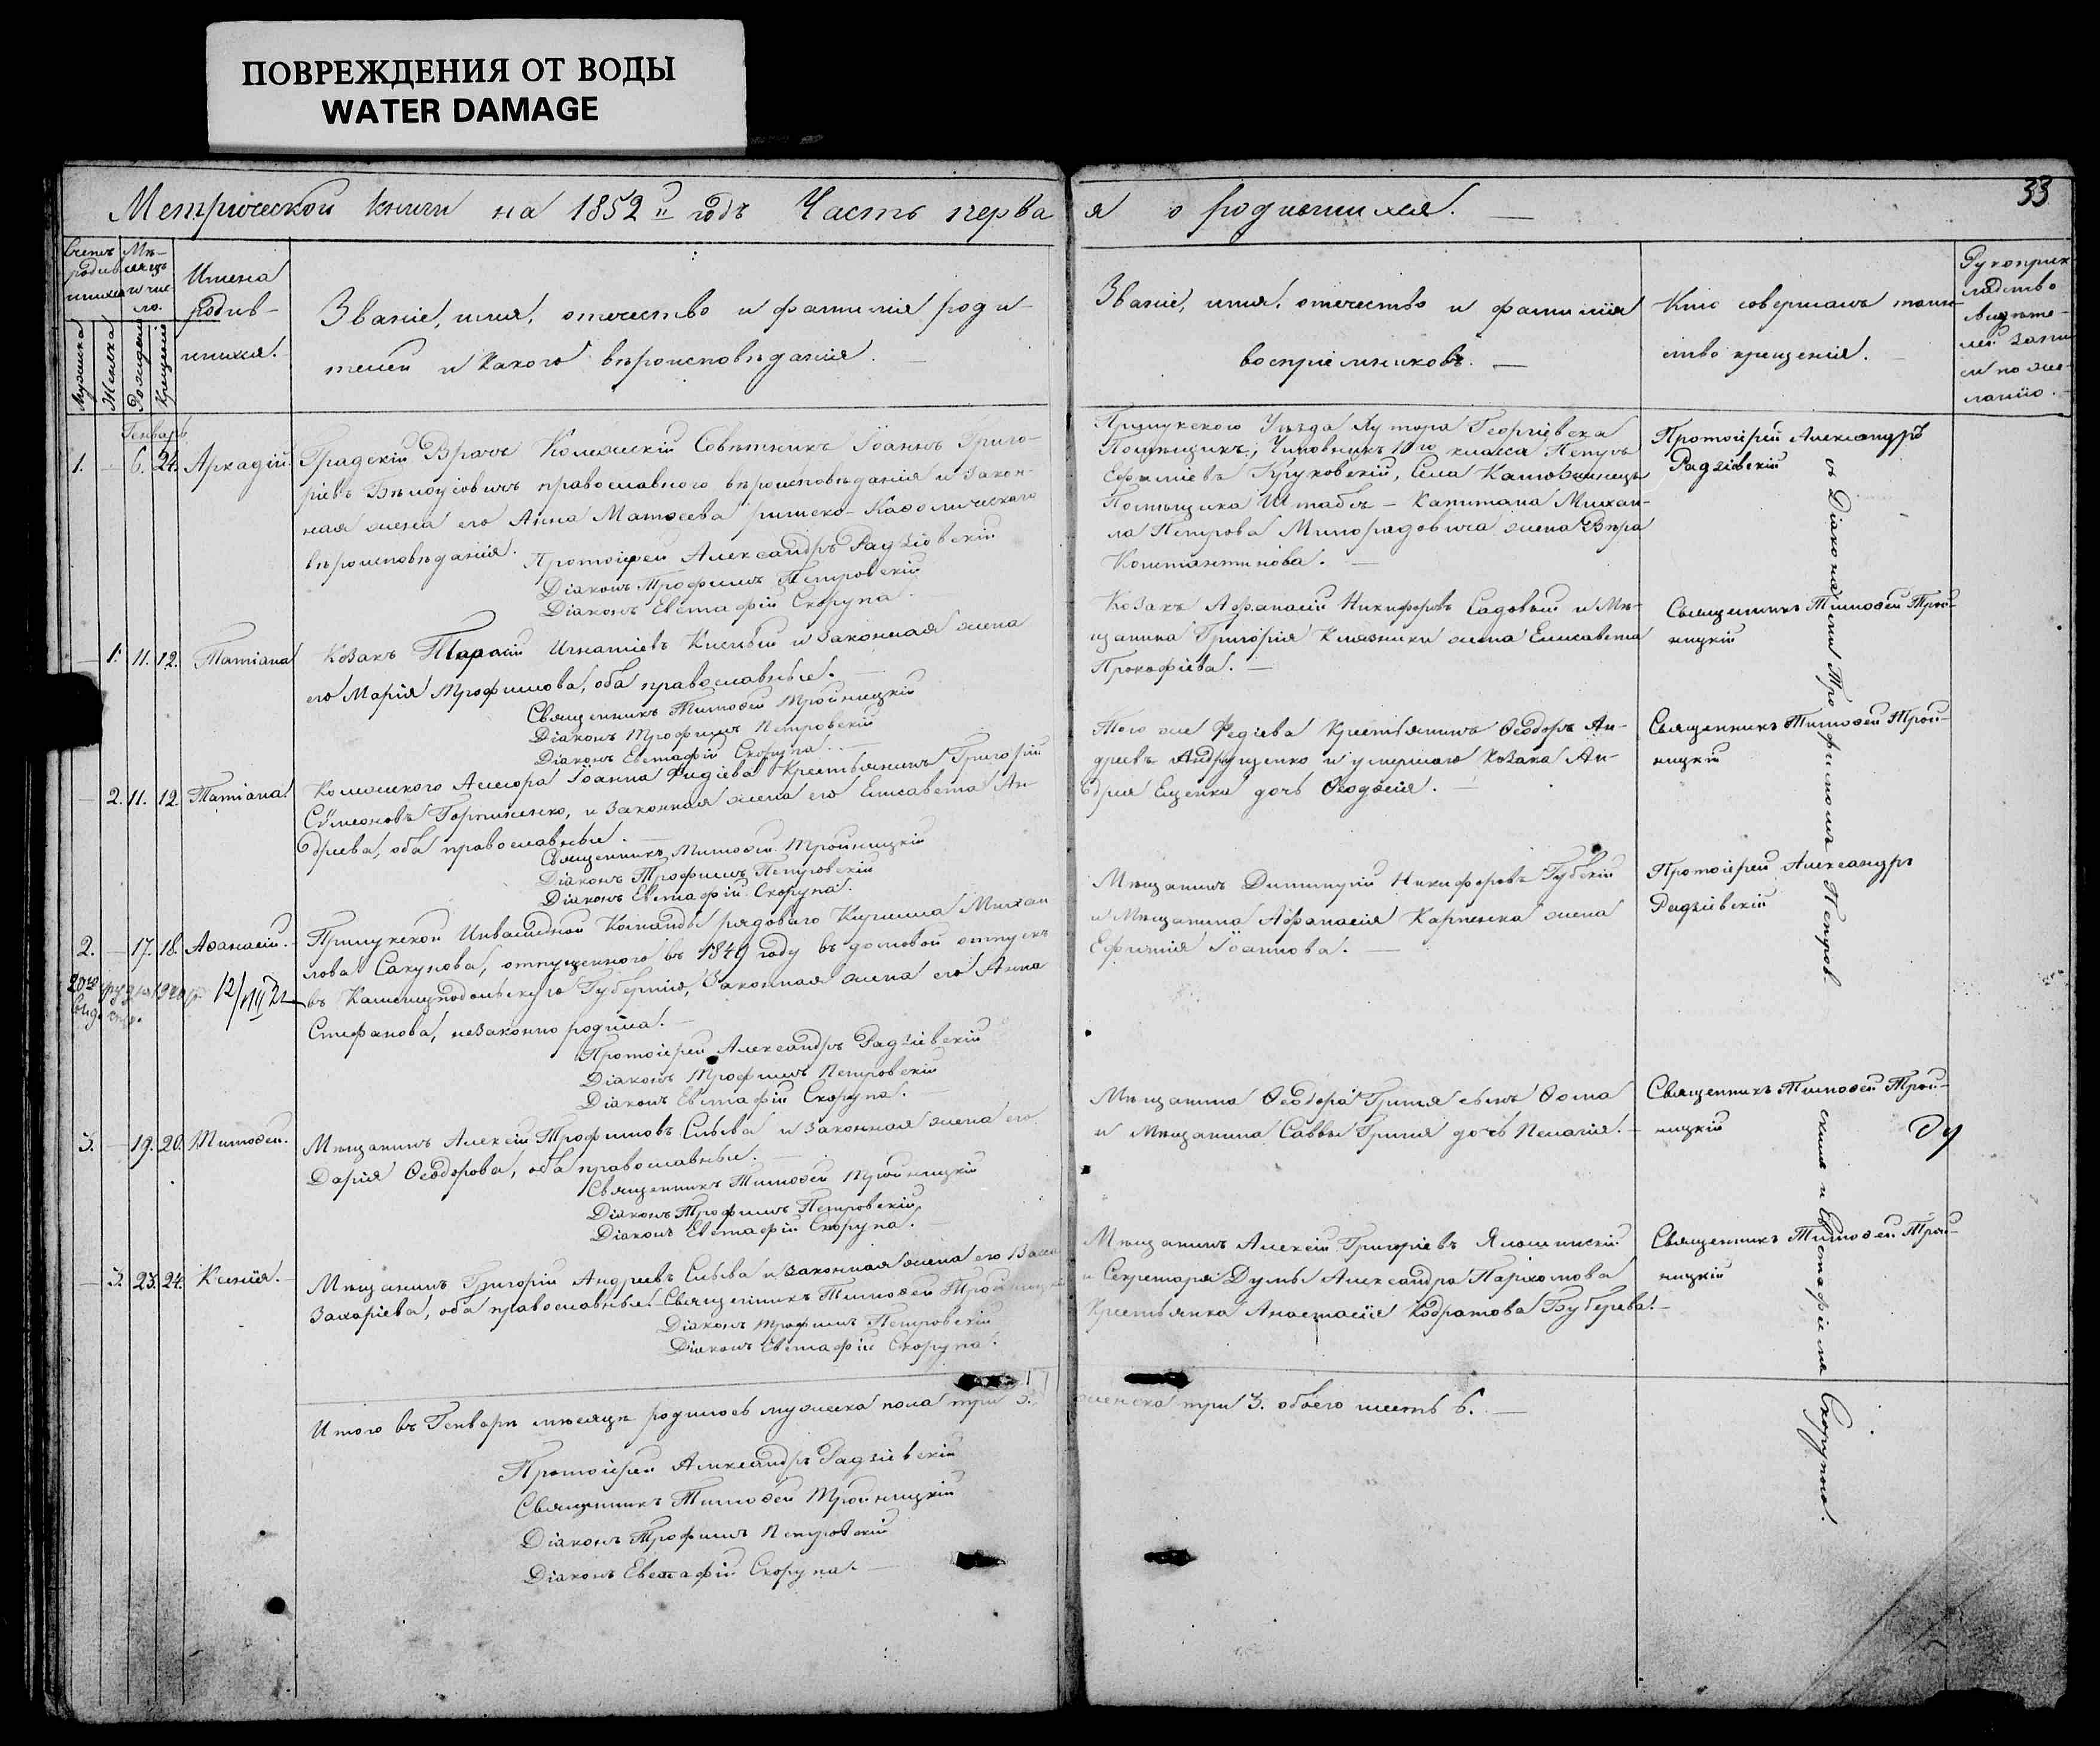 ПОВРЕЖДЕНИЯ ОТ ВОДЫ
WATER DAMAGE
33
Метрической книги на 1852й годъ Часть перва
я о родившихся.
Счетъ родившихся
Мѣсяцъ и число.
Мужска
Женска
Рожденія
Крещенія
Имена
родив-
шихся.
Званіе, имя, отечество и фамилія роди-
телей и какого вѣроисповѣданія.
Званіе, имя, отечество и фамилія
воспріемниковъ.
Кто совершалъ таин-
ство крещенія.
Рукоприк-
ладство
свидѣте-
лей запи
си по же-
ланію.
Генварь
1. - 6. 24. Аркадій
Градскій Врачъ Коллежскій Совѣтникъ Іоаннъ Григо-
ріевъ Бѣлоусовичъ православнаго вѣроисповѣданія и закон-
ная жена его Анна Матѳеева римско-Католическаго
вѣроисповѣданія. Протоіерей Александръ Радзіевскій
Діаконъ Трофимъ Петровскій
Діаконъ Евстафій Скорупа.
Прилукского Уѣзда Хутора Георгіевска
Помѣщикъ, Чиновникъ 10го класса Петръ
Ефиміевъ Круковскій, Села
Помѣщика Штабъ-Капитана Михаи-
ла Петрова Милорадовича жена Вѣра
Константинова.
Протоіерей Александръ
Радзіевскій
съ Діаконами Трофимомъ Петров
скимъ и Евстафіемъ Скорупою.
- 1. 11. 12. Татіана
Козакъ Тарасій Игнатіевъ и законная жена
его Марія Трофимова, оба православные.
Священникъ Тимоѳей Тройницкій
Діаконъ Трофимъ Петровскій
Діаконъ Евстафій Скорупа.
Козакъ Афанасій Никифоровъ Садовый и Мѣ-
щанина Григорія жена Елисавета
Прокофіева.
Священникъ Тимоѳей Трой-
ницкій
- 2. 11. 12. Татіана
Коллежского Ассесора Іоанна Федіева Крестьянинъ Григорій
Сѵмеоновъ Горпиненко, и законная жена его Елисавета Ан-
дреева, оба православные.
Священникъ Тимоѳей Тройницкій
Діаконъ Трофимъ Петровскій
Діаконъ Евстафій Скорупа.
Того же Федіева Крестьянинъ Ѳеодоръ Ан-
дреевъ Андрущенко и умершаго Козака Ан-
дрея Ещенка дочь Ѳеодосія.
Священникъ Тимоѳей Трой-
ницкій
2. - 17. 18. Аѳанасій.
Прилукской Инвалидной Команды рядоваго Кирилла Михаи
лова Сакунова, отпущенного въ 1849 году въ домовой отпускъ
въ Каменецподольскую Губернію, законная жена его Анна
Стефанова, незаконно родила.
Протоіерей Александръ Радзіевскій
Діаконъ Трофимъ Петровскій
Діаконъ Евстафій Скорупа.
Мѣщанинъ Димитрій Никифоровъ Губскій
и Мѣщанина Афанасія Карпенка жена
Ефимія Іоаннова.
Протоіерей Александръ
Радзіевскій
3. - 19. 20. Тимоѳей.
Мѣщанинъ Алексій Трофимовъ Слыва и законная жена его
Дарія Ѳеодорова, оба православные.
Священникъ Тимоѳей Тройницкій
Діаконъ Трофимъ Петровскій
Діаконъ Евстафій Скорупа.
Мѣщанина Ѳеодора Гриня сынъ Ѳома
и Мѣщанина Саввы Гриня дочь Пелагія.
Священникъ Тимоѳей Трой-
ницкій
- 3. 23. 24. Ксенія.
Мѣщанинъ Григорій Андреевъ Слыва и законная жена его Васса
Захаріева, оба православные. Священникъ Тимоѳей Тройницкій
Діаконъ Трофимъ Петровскій
Діаконъ Евстафій Скорупа.
Мѣщанинъ Алексій Григоріевъ
и Секретаря Думы Александра Пархомова
Крестьянка Анастасія Кодратова
Священникъ Тимоѳей Трой-
ницкій
Итого въ Генварѣ мѣсяцѣ родилось мужска пола три 3.
женска три 3. обоего шесть 6.
Протоіерей Александръ Радзіевскій
Священникъ Тимоѳей Тройницкій
Діаконъ Трофимъ Петровскій
Діаконъ Евстафій Скорупа.